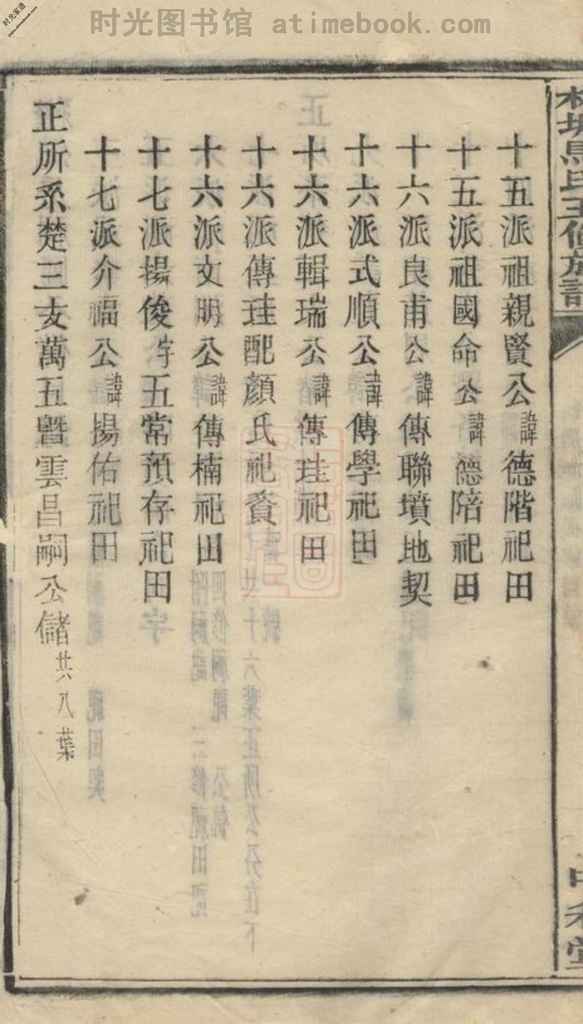 时光图书馆 atimebook.com
十五派祖親賢公諱德階祀田
十五派祖國命公諱德陪祀田
十六派良甫公諱傳聯墳地契
十六派式順公諱傳學祀田
十六派輯瑞公諱傳珪祀田
十六派傳珪配顏氏祀資
十六派文明公諱傳楠祀田
十七派揚俊字五常預存祀田
十七派介福公諱揚佑祀田
正所系楚三支萬五曁雲昌嗣公儲共八葉